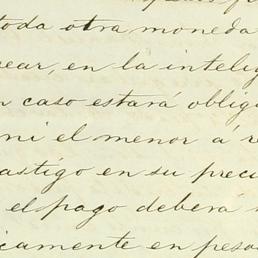 toda otra moneda
ear, en la intelig
n caso estará oblig
ni el menor á r
astigo en su prec
el pago deberá
camente en peso